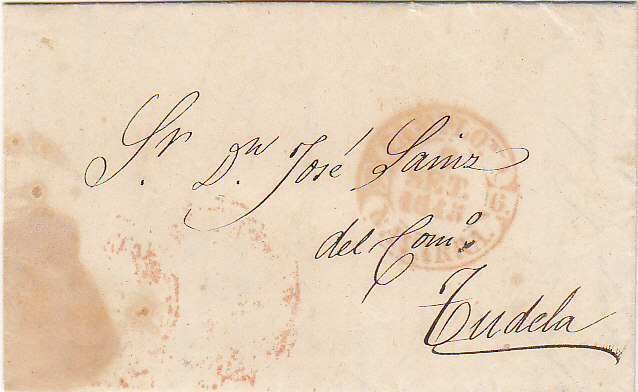 Sr. Dn José Sainz
del Comº
Tudela
1845